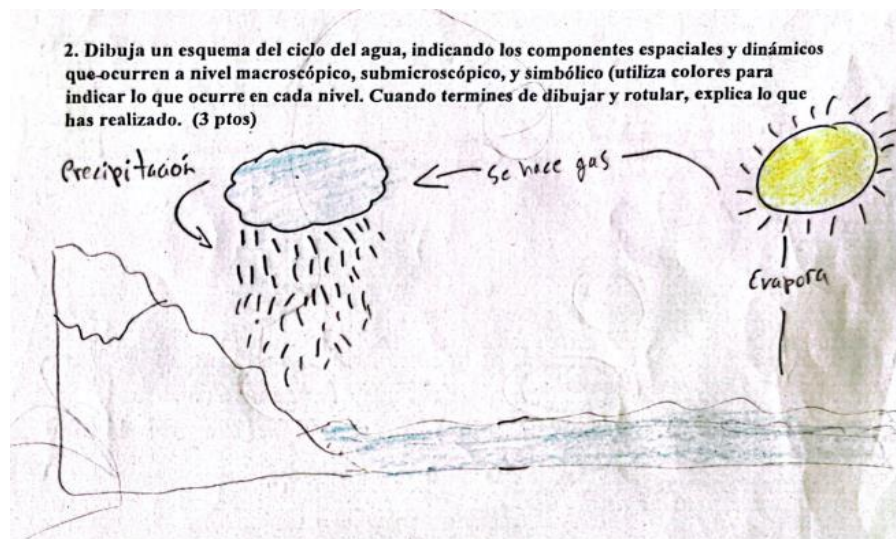 2. Dibuja un esquema del ciclo del agua, indicando los componentes espaciales y dinámicos
que ocurren a nivel macroscópico, submicroscópico, y simbólico (utiliza colores para
indicar lo que ocurre en cada nivel. Cuando termines de dibujar y rotular, explica lo que
has realizado. (3 ptos)
Precipitación
Se hace gas
Evapora